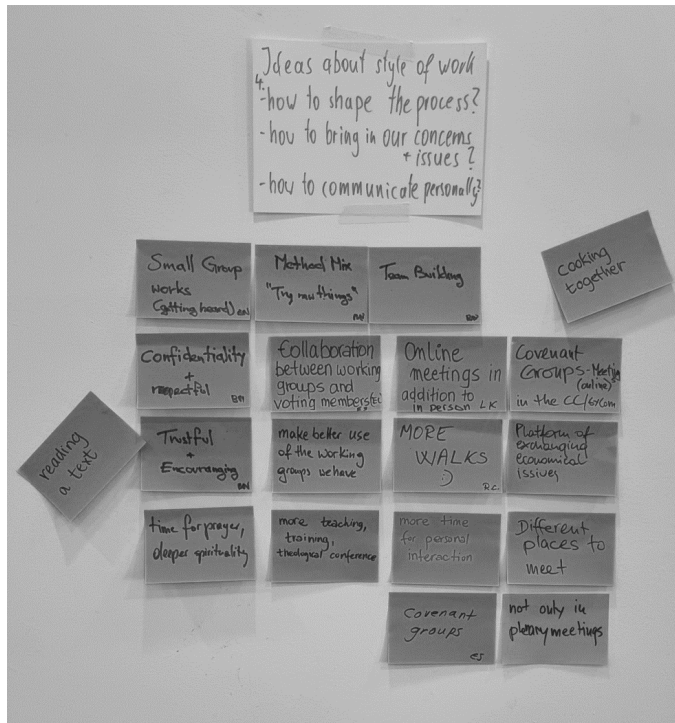 Ideas about style of work
4.
-how to shape the process?
-how to bring in our concerns
+ issues?
-how to communicate personally?
Small Group
works
(getting heard) BN
Method Mix
"Try new things"
BN
Team Building
BN
cooking
together
Confidentiality
+
respectful BN
Collaboration
between working
groups and
voting members
Online
meetings in
addition to
in person LK
Covenant
Groups-Meeting
(online)
in the CC/SyCom
reading
a text
Trustful
+
Encouranging
BN
make better use
of the working
groups we have
MORE
WALKS
:)
R.C.
Platform of
exchanging
economical
issives
time for prayer,
deeper spirituality
more teaching,
training,
theological conference
more time
for personal
interaction
Different
places to
meet
Covenant
groups
ES
not only in
plenary meetings